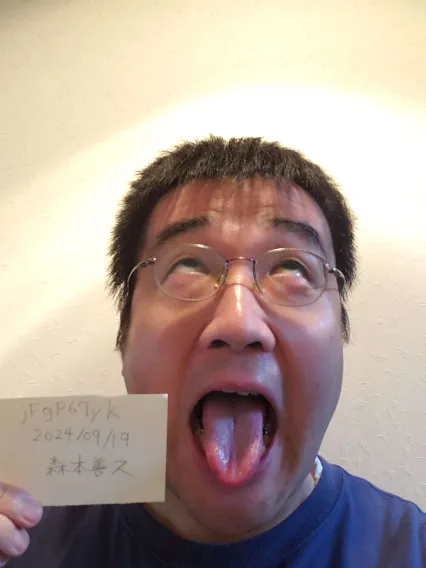 jFgP67yk
2024/09/19
森本善久